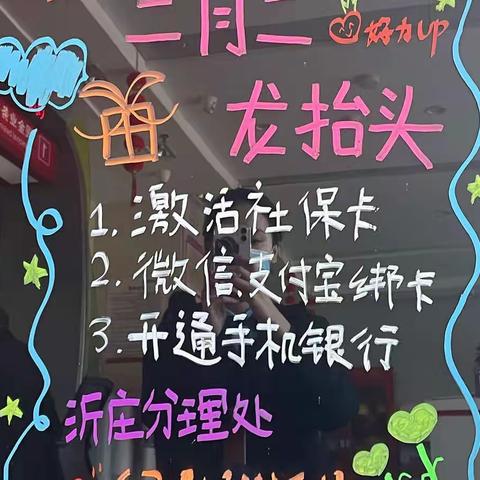 二月二
好力up
龙抬头
1.激活社保卡
2.微信支付宝绑卡
3.开通手机银行
沂庄分理处